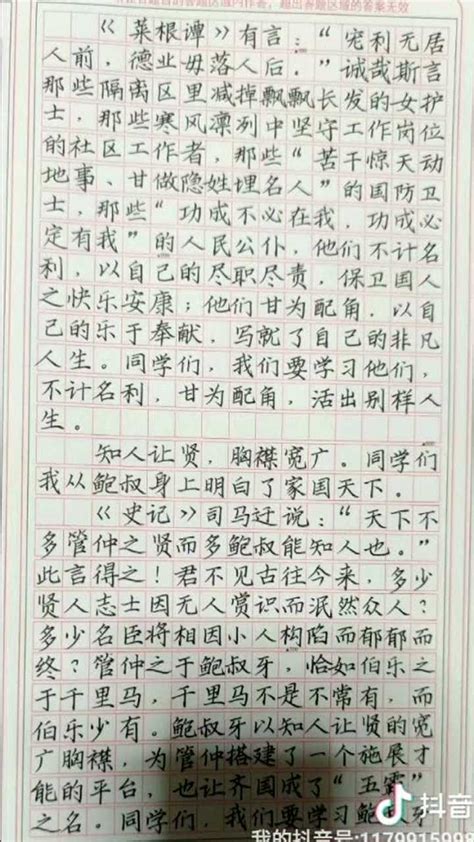 请在各题目的答题区域内作答，超出答题区域的答案无效
《菜根谭》有言：“宠利无居
人前，德业毋落人后。”诚哉斯言
那些隔离区里减掉飘飘长发的女护
士，那些寒风凛冽中坚守工作岗位
的社区工作者，那些“苦干惊天动
地事、甘做隐姓埋名人”的国防卫
士，那些“功成不必在我，功成必
定有我”的人民公仆，他们不计名
利，以自己的尽职尽责，保卫国人
之快乐安康；他们甘为配角，以自
己的乐于奉献，写就了自己的非凡
人生。同学们，我们要学习他们，
不计名利，甘为配角，活出别样人
生。
知人让贤，胸襟宽广。同学们
我从鲍叔身上明白了家国天下。
《史记》司马迁说：“天下不
多管仲之贤而多鲍叔能知人也。”
此言得之！君不见古往今来，多少
贤人志士因无人赏识而泯然众人？
多少名臣将相因小人构陷而郁郁而
终？管仲之于鲍叔牙，恰如伯乐之
于千里马，千里马不是不常有，而
伯乐少有。鲍叔牙以知人让贤的宽
广胸襟，为管仲搭建了一个施展才
能的平台，也让齐国成了“五霸”
之名。同学们，我们要学习鲍叔牙
抖音
我的抖音号:1179915998